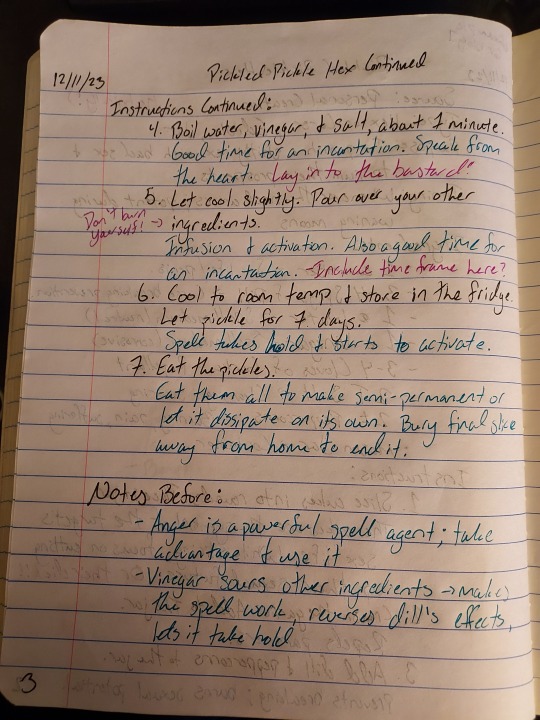 Pickled Pickle Hex Continued
12/11/23
Instructions Continued:
4. Boil water, vinegar, & salt, about 1 minute.
Good time for an incantation. Speak from
the heart. Lay in to the bastard!
5. Let cool slightly. Pour over your other
Don't burn
yourself! → ingredients.
Infusion & activation. Also a good time for
an incantation. -Include time frame here?
6. Cool to room temp & store in the fridge.
Let pickle for 7 days.
Spell takes hold & starts to activate.
7. Eat the pickles.
Eat them all to make semi-permanent or
let it dissipate on its own. Bury final slice
away from home to end it.
Notes Before:
- Anger is a powerful spell agent; take
advantage & use it
- Vinegar sours other ingredients → makes
the spell work, reverses dill's effects,
lets it take hold
3